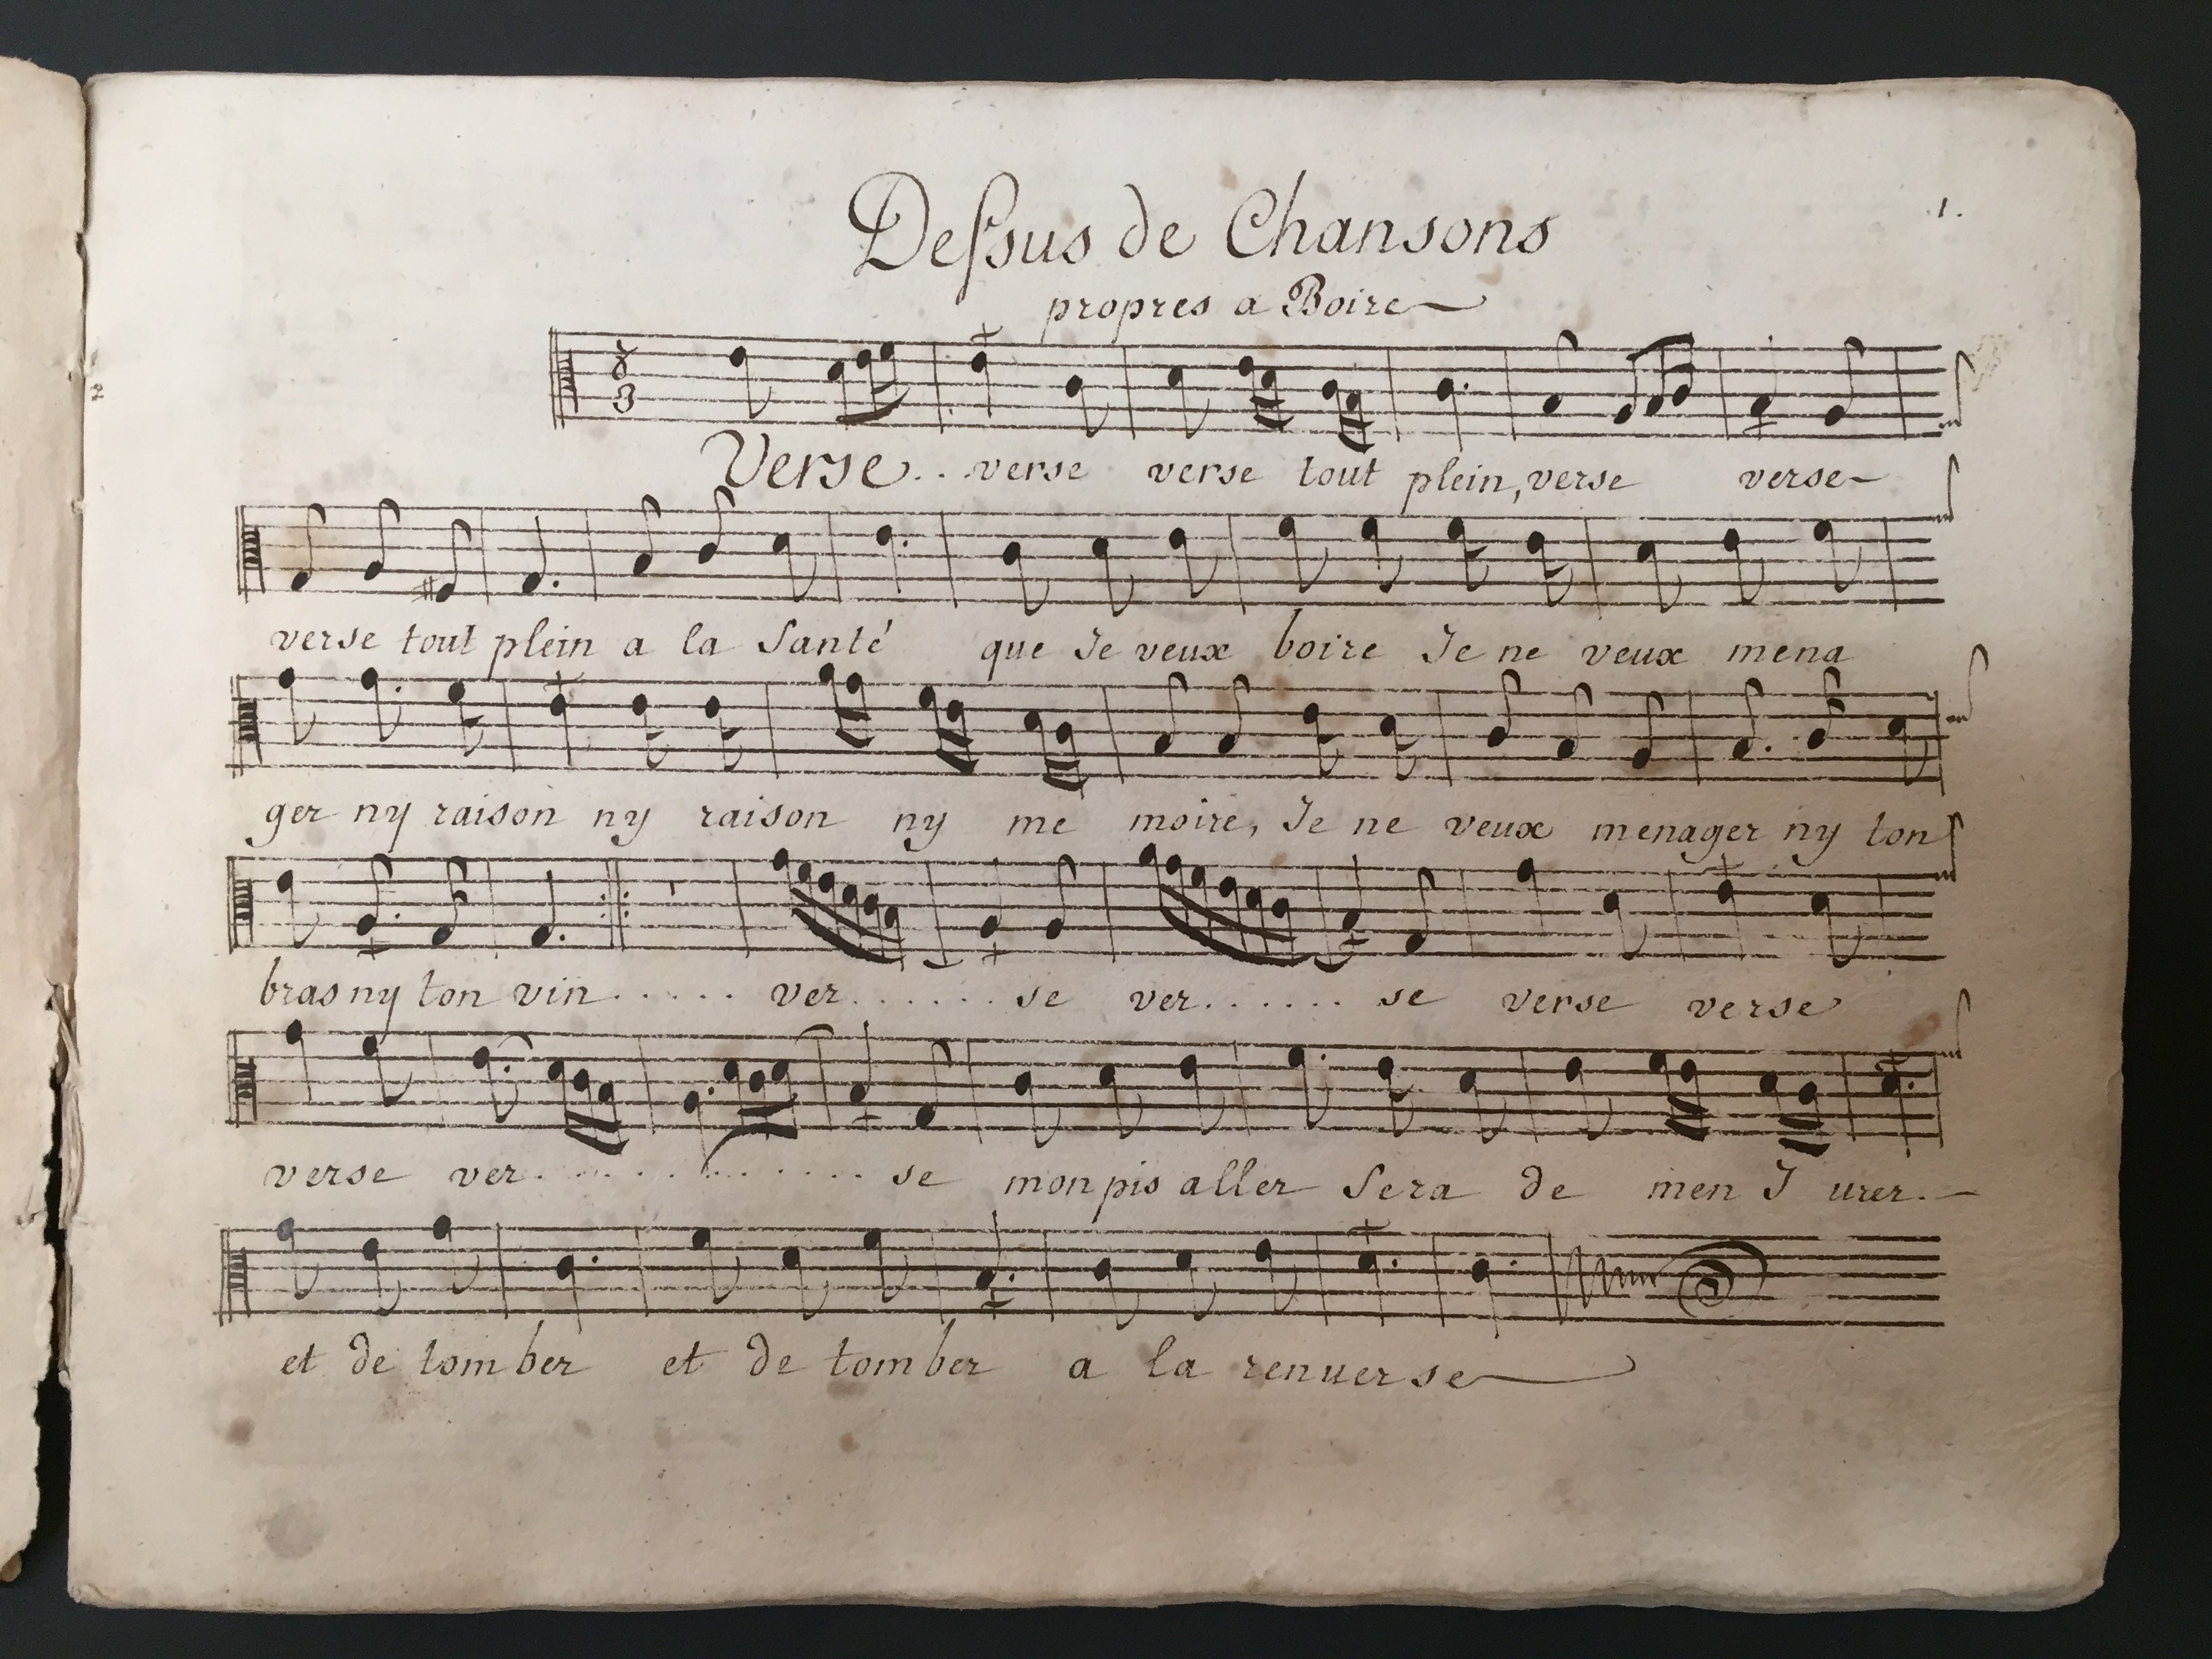 1.
Dessus de Chansons
propres a Boire
Verse... verse verse tout plein, verse verse
verse tout plein a la Santé que Je veux boire Je ne veux mena
ger ny raison ny raison ny me moire, Je ne veux menager ny ton
bras ny ton vin...... ver....... se ver....... se verse verse
verse ver............ se mon pis aller Sera de men J urer.
et de tomber et de tomber a la renuerse
2